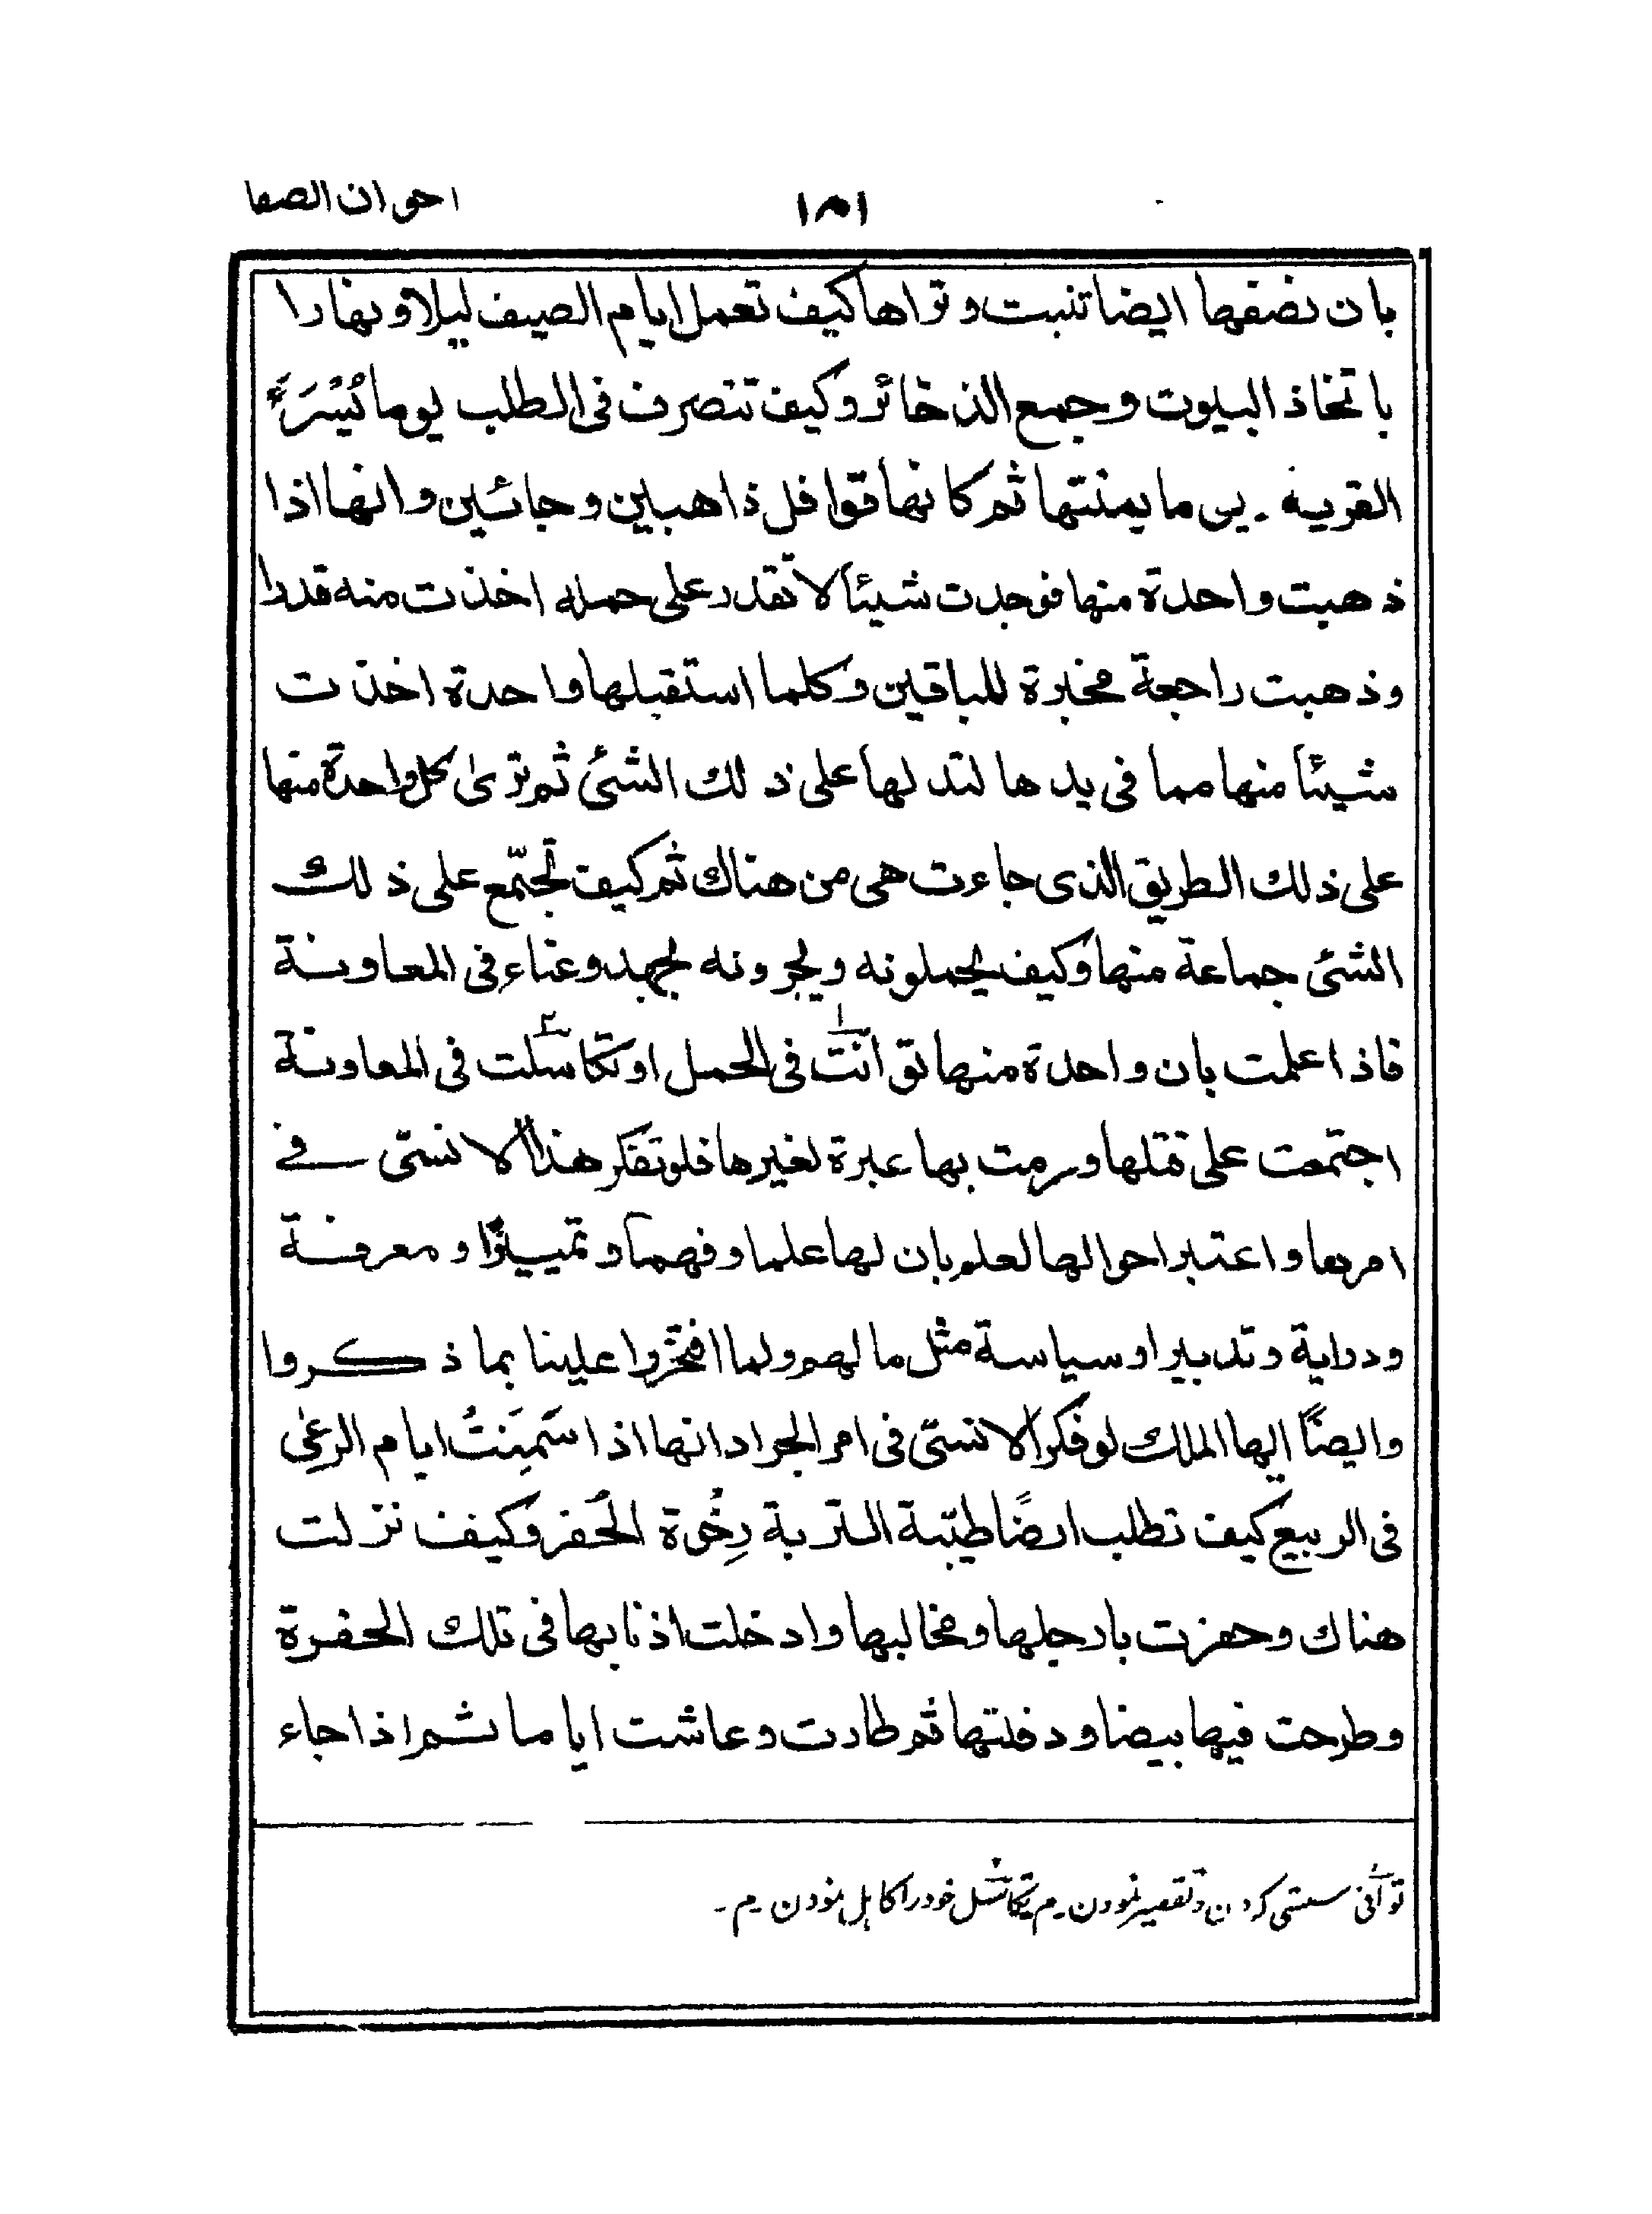 اخوان الصفا
١٨١
بان نصفها ايضا تنبت وتراها كيف تعمل ايام الصيف ليلا ونهارا
باتخاذ البيوت وجمع الذخائر وكيف تتصرف فى الطلب يوما يُسْرَةً
القرية يمنتها ثم كانها قوافل ذاهبين وجائين وانها اذا
ذهبت واحدة منها فوجدت شيئاً لا تقدر على حمله اخذت منه قدرا
وذهبت راجعة مخبرة للباقين وكلما استقبلها واحدة اخذت
شيئاً منها مما فى يدها لتدلها على ذلك الشئ ثم ترىٰ كل واحدة منها
على ذلك الطريق الذى جاءت هى من هناك ثم كيف تجتمّع على ذلك
الشئ جماعة منها وكيف يحملونه ويجرونه بجهد وعناء فى المعاونة
فاذا علمت بان واحدة منها توانتْ١ فى الحمل او تكاسلت٢ فى المعاونة
اجتمعت على قتلها ورمت بها عبرة لغيرها فلو تفكر هذا الانسىّ فے
امرها واعتبر احوالها لعلم بان لها علما وفهماً وتمييزًا ومعرفة
ودراية وتدبيرا وسياسة مثل ما لهم ولما افتخَروا علينا بما ذكروا
وايضًا ايها الملك لو فكر الانسىّ فى امر الجراد انها اذا سَمِنَتْ ايام الرعىِ
فى الربيع كيف تطلب ارضًا طيّبة التربة رِخْوة الحُفر وكيف نزلت
هناك وحفرت بارجلها ومخالبها وادخلت اذنابها فى تلك الحفرة
وطرحت فيها بيضا ودفنتها ثم طارت وعاشت اياما ثم اذا جاء
توانی سستی کردن و تقصیر نمودن۔ م تکاسل خود را کاہل نمودن۔ م۔